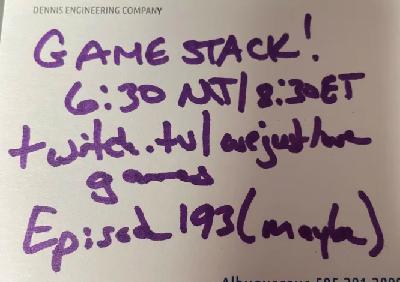 DENNIS ENGINEERING COMPANY
GAME STACK!
6:30 MT/8:30 ET
twitch.tv/wejustlove
games
Episod 193 (maybe)
Albuquerque 505.281.2880